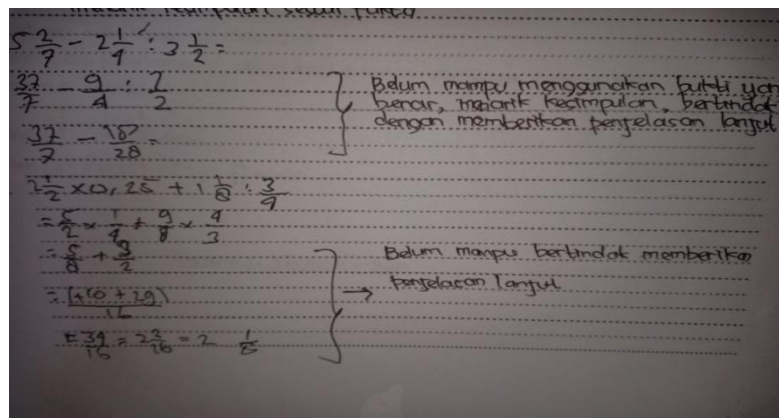 5 2/7 - 2 1/4 : 3 1/2 =
37/7 - 9/4 : 7/2
37/7 - 18/28 =
Belum mampu menggunakan bukti yan
benar, menarik kesimpulan, bertindak
dengan memberikan penjelasan lanjut
2 1/2 x 0,25 + 1 1/8 : 3/4
= 5/2 x 1/4 + 9/8 x 4/3
= 5/8 + 3/2
16
= 34/16 = 2 2/16 = 2 1/8
Belum mampu bertindak memberikan
penjelasan lanjut